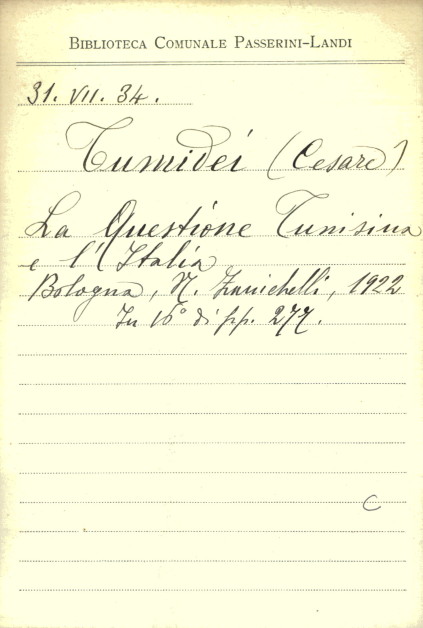 BIBLIOTECA COMUNALE PASSERINI-LANDI
31. VII. 34.
Tumidei (Cesare)
La Questione Tunisina
e l'Italia
Bologna, N. Zanichelli, 1922
In 16° di pp. 277.
C